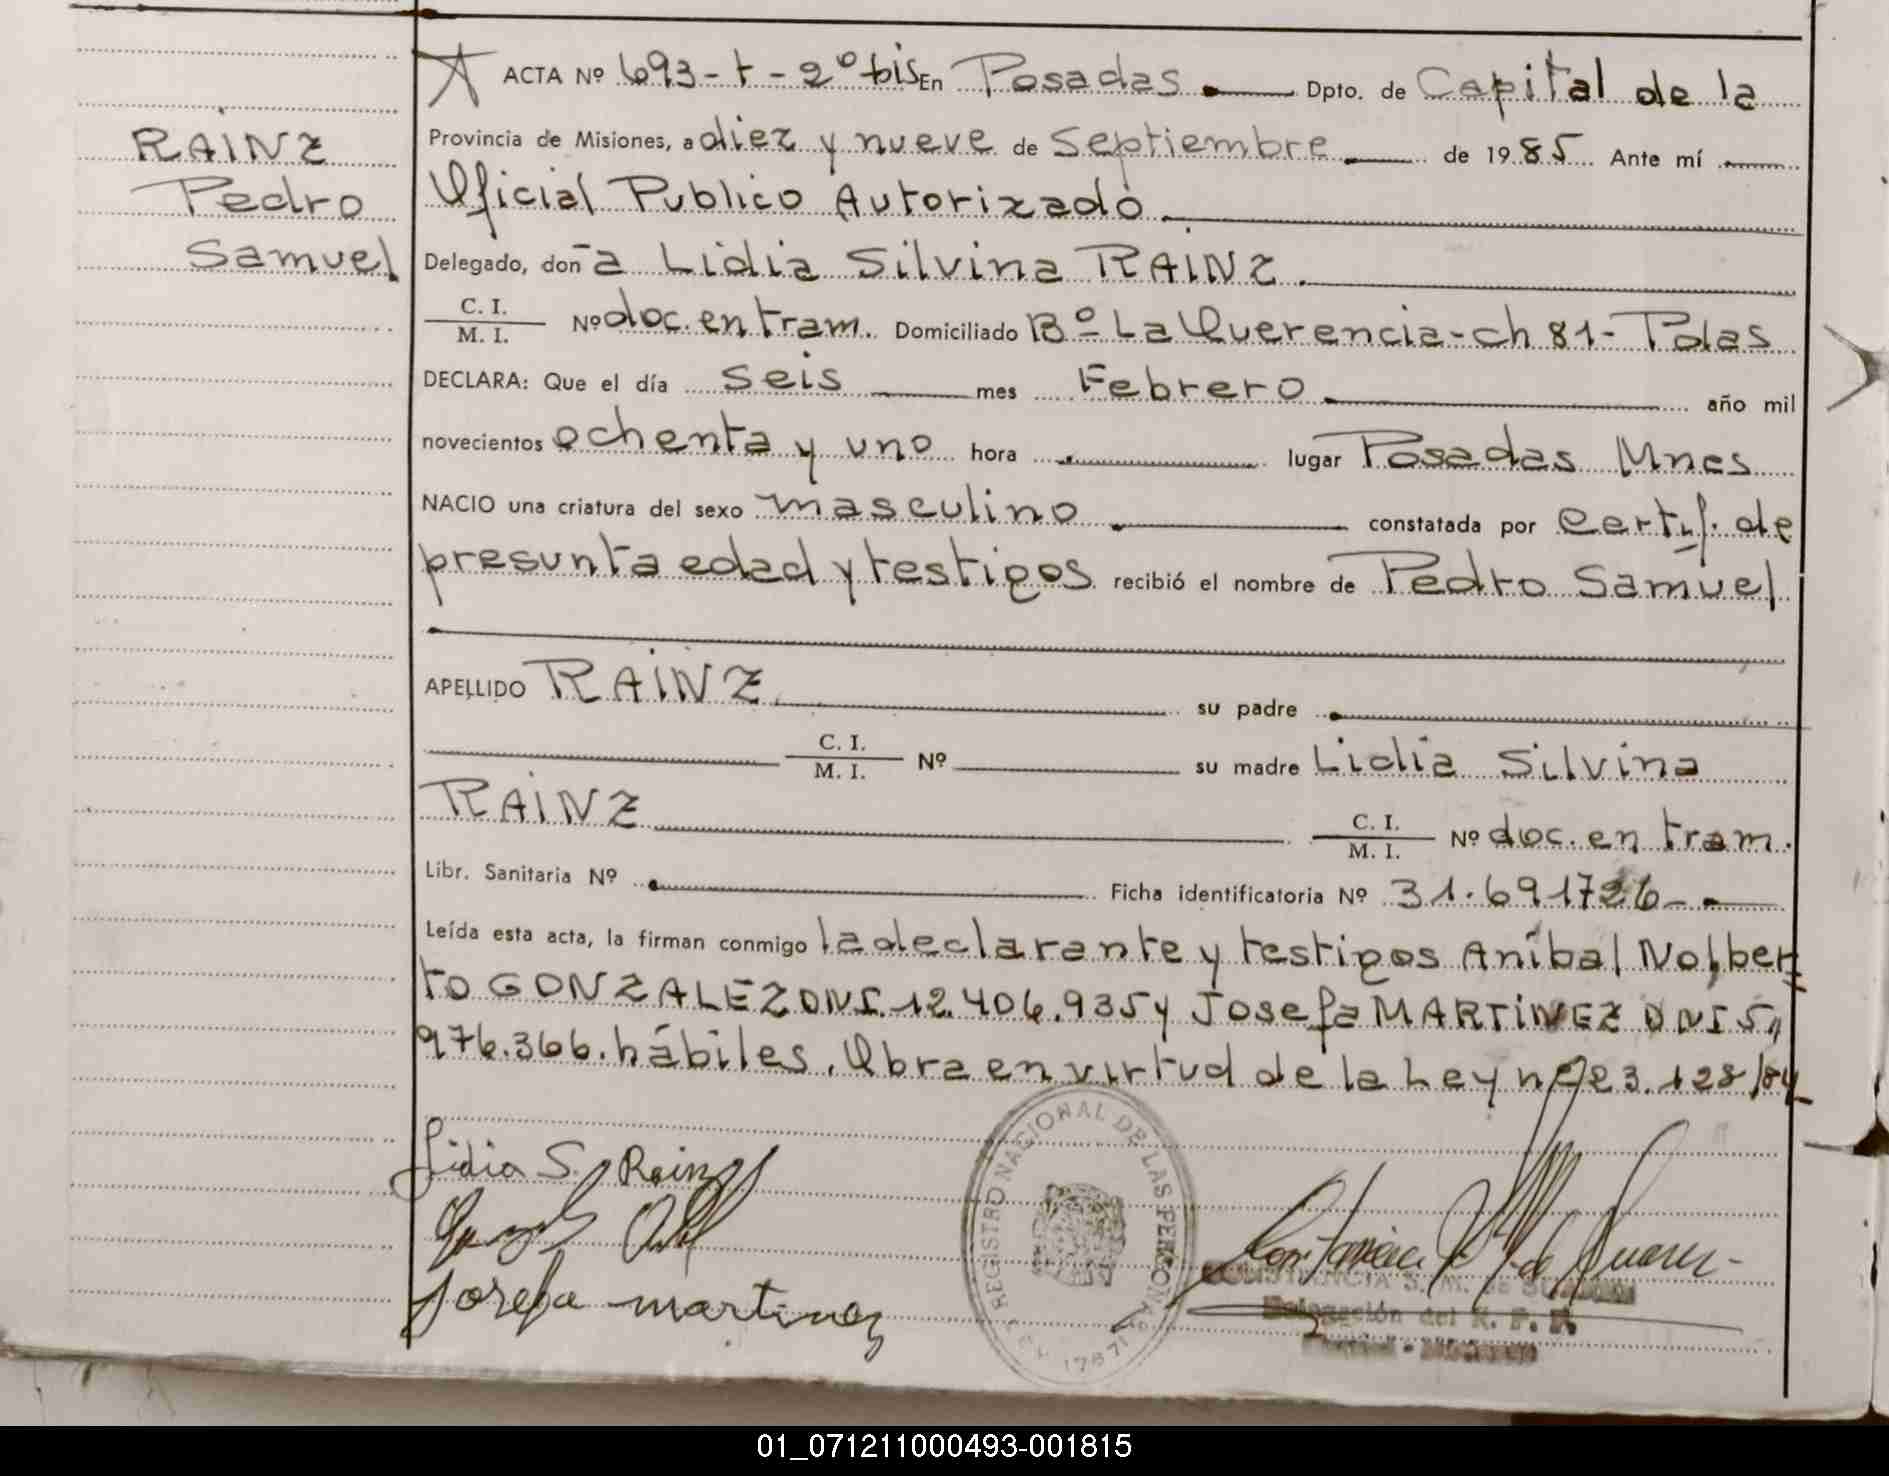 ACTA Nº 693-t-2º bis En Posadas Dpto. de Capital de la
Provincia de Misiones, a diez y nueve de Septiembre de 1985 Ante mí
Oficial Publico Autorizado
Delegado, doña Lidia Silvina RAINZ.
C. I.
M. I.
Nº doc. en tram. Domiciliado Bº La Querencia-ch 81- Pdas
DECLARA: Que el día seis mes Febrero año mil
novecientos ochenta y uno hora lugar Posadas Mnes
NACIO una criatura del sexo masculino constatada por certif. de
presunta edad y testigos recibió el nombre de Pedro Samuel
APELLIDO RAINZ su padre
C. I.
M. I.
Nº su madre Lidia Silvina
RAINZ
C. I.
M. I.
Nº doc. en tram.
Libr. Sanitaria Nº Ficha identificatoria Nº 31.691726-
Leída esta acta, la firman conmigo la declarante y testigos Aníbal Nolber
to GONZALEZ DNI. 12.406.935 y Josefa MARTINEZ DNI 5,
976.366. hábiles. Obra en virtud de la Ley nº 23.128/84
RAINZ
Pedro
Samuel
Lidia S. Rainz
Josefa martinez
REGISTRO NACIONAL DE LAS PERSONAS
LEY 17671
CONSTANCIA S. M. de
Delegación del R. P. P.
01_071211000493-001815